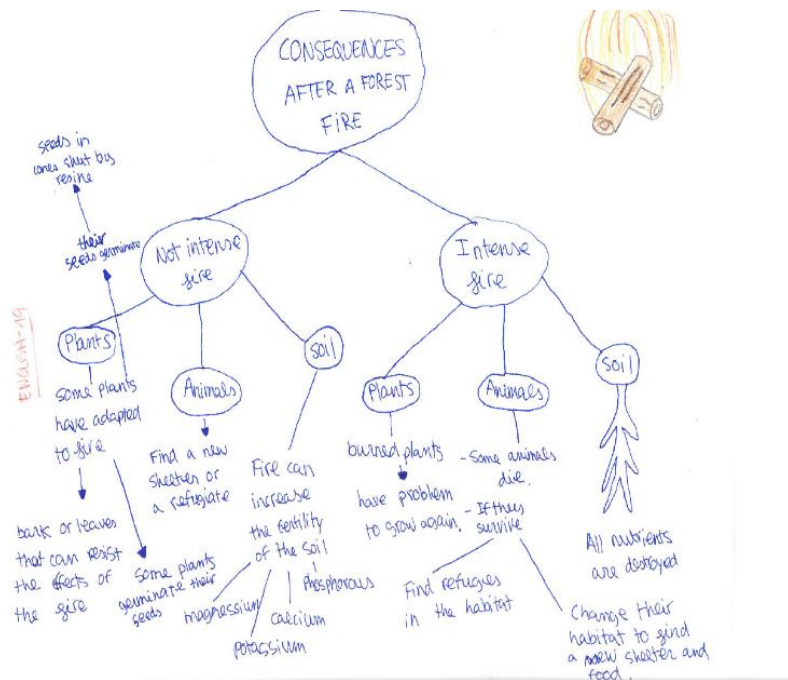 CONSEQUENCES
AFTER A FOREST
FIRE
seeds in
cones shut by
resine
their
seeds germinate
Not intense
fire
Intense
fire
ENGLISH-19
Plants
Animals
soil
Plants
Animals
soil
some plants
have adapted
to fire
bark or leaves
that can resist
the effects of
the fire
Some plants
germinate their
seeds
Find a new
shelter or
a refugiate
Fire can
increase
the fertility
of the soil
magnessium
potassium
calcium
Phosphorous
burned plants
have problem
to grow again.
- Some animals
die.
- If thus
survive
Find refugies
in the habitat
Change their
habitat to find
a new shelter and
food.
All nutrients
are destroyed